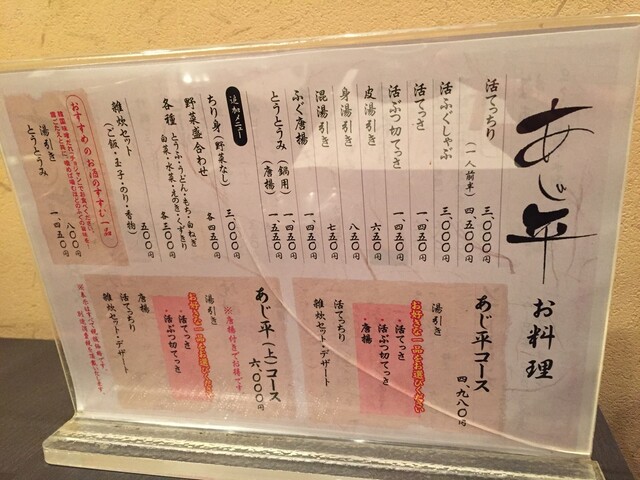 あじ平
お料理
活てっちり 三、〇〇〇円
(一人前半) 四、五〇〇円
活ふぐしゃぶ 三、〇〇〇円
活てっさ 一、四五〇円
活ぶつ切てっさ 一、四五〇円
皮湯引き 六五〇円
身湯引き 八五〇円
混湯引き 七五〇円
ふぐ唐揚 一、四五〇円
とうとうみ(鍋用)(唐揚) 一、四五〇円
追加メニュー
ちり身(野菜なし) 三、〇〇〇円
野菜盛合わせ 各四五〇円
各種 とうふ・うどん・もち・白ねぎ
白菜・水菜・えのき・くずきり 各三〇〇円
雑炊セット
(ご飯・玉子・のり・香物) 五〇〇円
おすすめのお酒のすすむ一品
湯引き 八〇〇円
とうとうみ 一、四五〇円
あじ平コース
四、九八〇円
湯引き
お好きな一品をお選びください
・活てっさ
・活ぶつ切てっさ
・唐揚
活てっちり
雑炊セット・デザート
あじ平(上)コース
六、〇〇〇円
※唐揚付きでお得です
湯引き
お好きな一品をお選びください
・活てっさ
・活ぶつ切てっさ
唐揚
活てっちり
雑炊セット・デザート